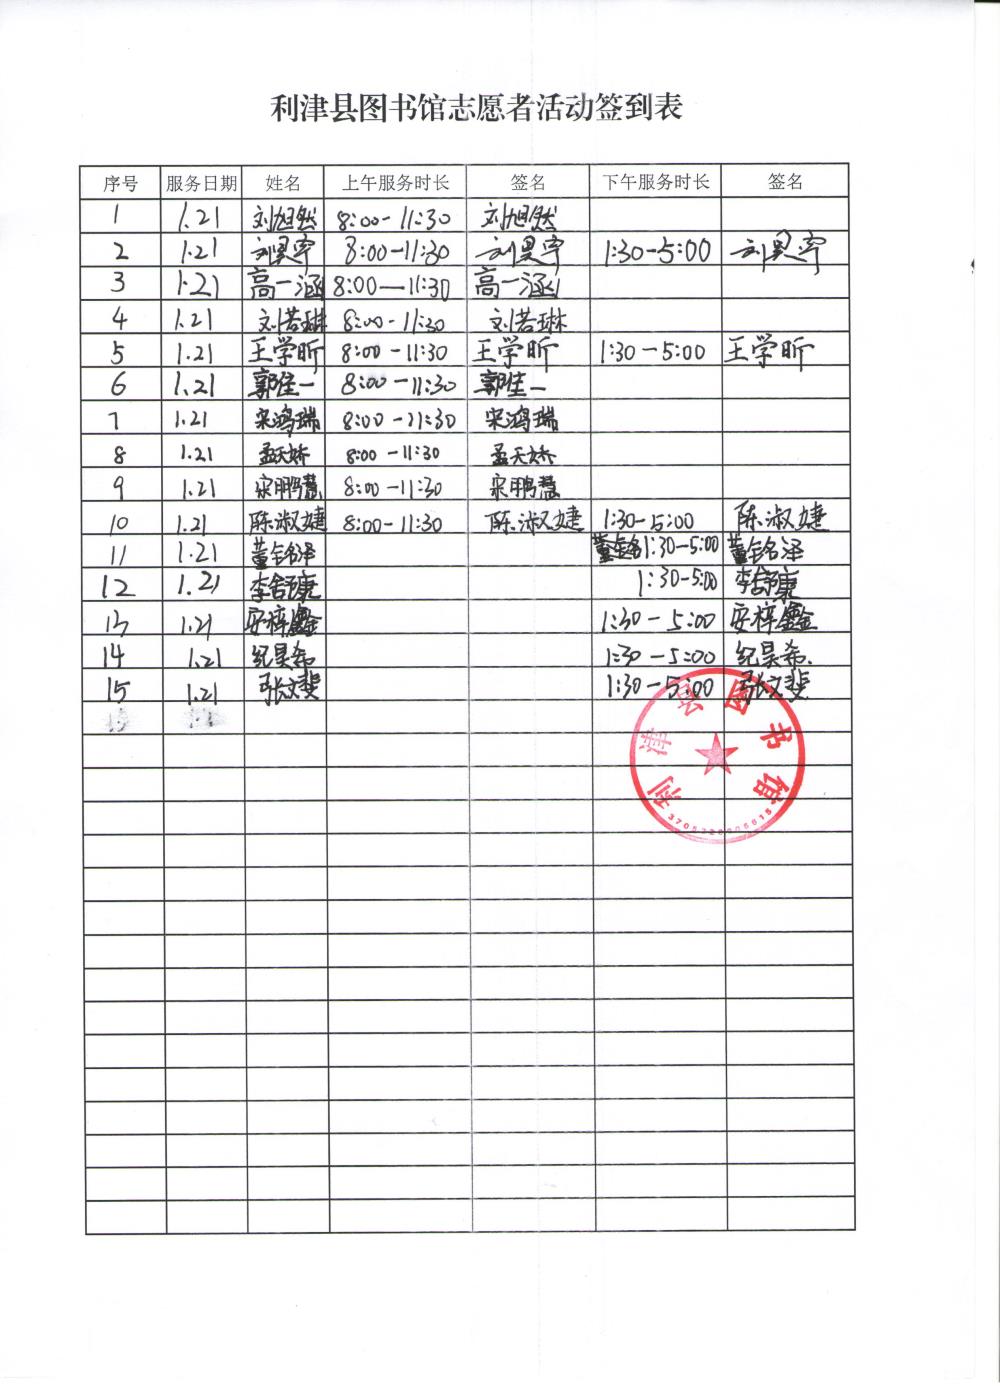 利津县图书馆志愿者活动签到表
序号 服务日期 姓名 上午服务时长 签名 下午服务时长 签名
1 1.21 刘旭然 8:00-11:30 刘旭然
2 1.21 刘昊宇 8:00-11:30 刘昊宇 1:30-5:00 刘昊宇
3 1.21 高一涵 8:00-11:30 高一涵
4 1.21 刘若琳 8:00-11:30 刘若琳
5 1.21 王学昕 8:00-11:30 王学昕 1:30-5:00 王学昕
6 1.21 郭佳一 8:00-11:30 郭佳一
7 1.21 宋鸿瑞 8:00-11:30 宋鸿瑞
8 1.21 孟天娇 8:00-11:30 孟天娇
9 1.21 宋鹏慧 8:00-11:30 宋鹏慧
10 1.21 陈淑婕 8:00-11:30 陈淑婕 1:30-5:00 陈淑婕
11 1.21 董铭泽 董铭 1:30-5:00 董铭泽
12 1.21 李舒康 1:30-5:00 李舒康
13 1.21 安梓鑫 1:30-5:00 安梓鑫
14 1.21 纪昊希 1:30-5:00 纪昊希
15 1.21 张文斐 1:30-5:00 张文斐
利津县图书馆